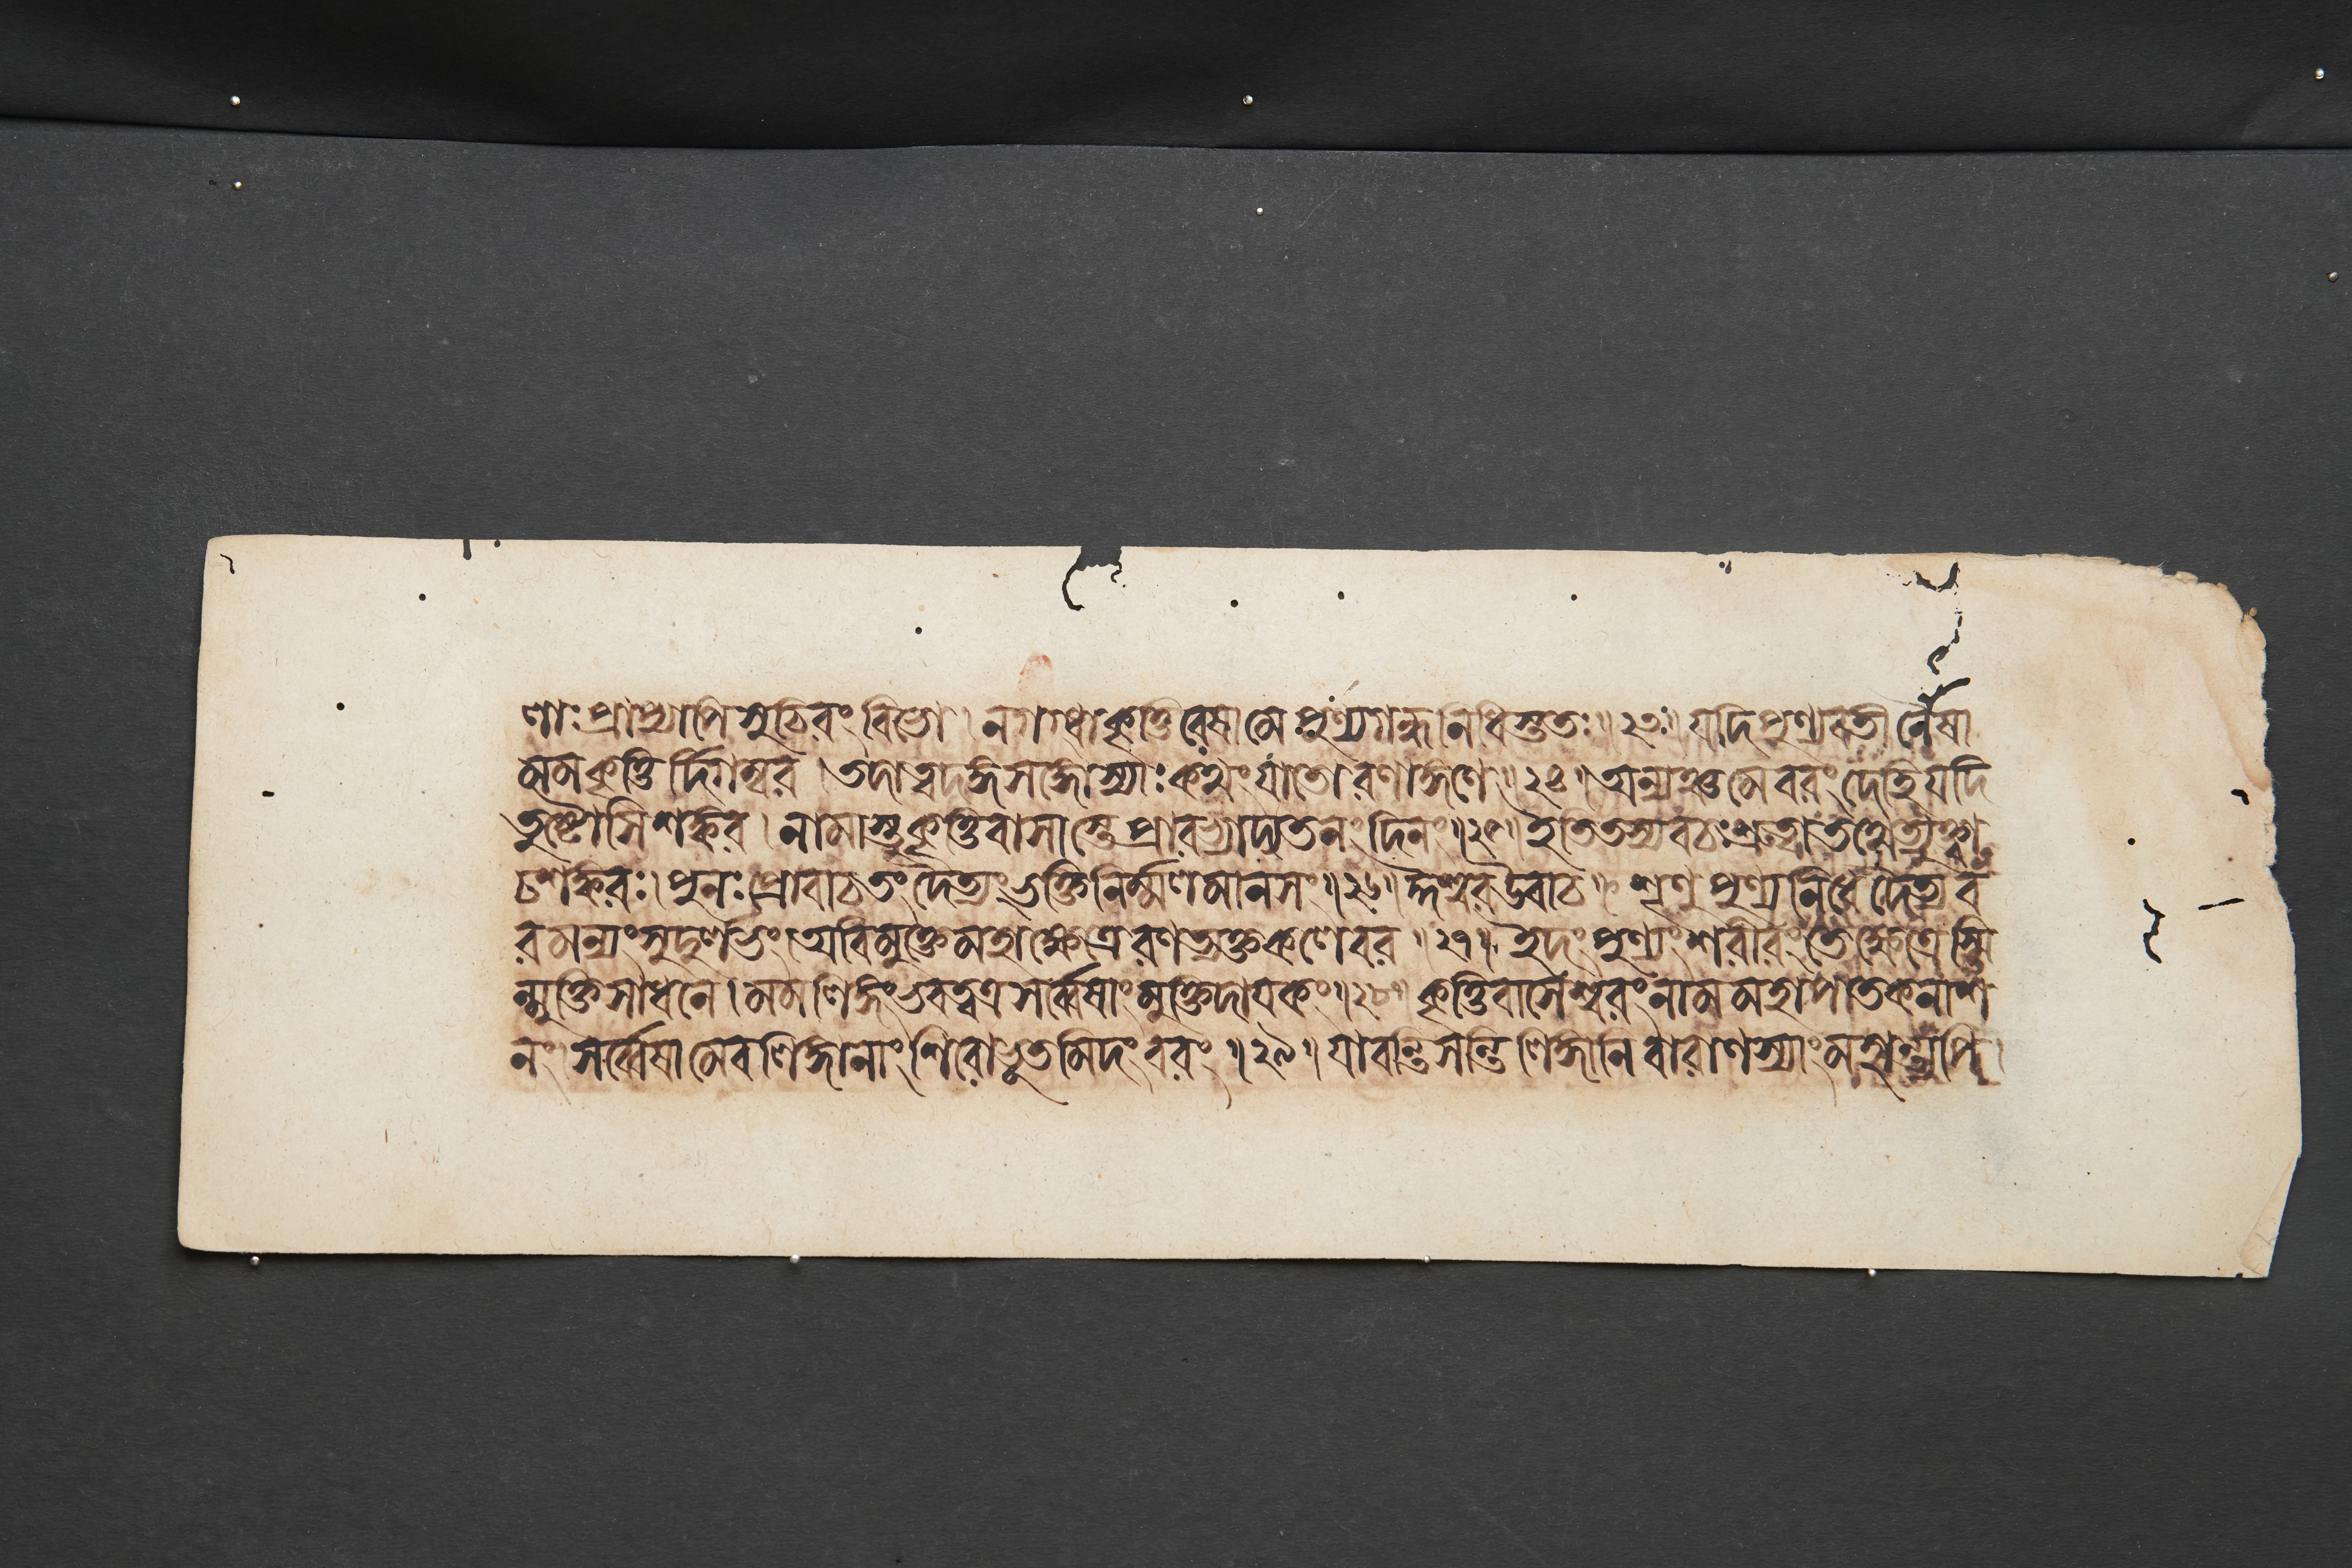 লাঃ প্রাপ্যাপি সুচিরং বিভো। ন দগ্ধা কৃত্তিরেষা মে পুণ্যগন্ধনিধিস্ততঃ॥২৩॥ যদি পুণ্যবতী নৈষা
মম কৃত্তি র্দিগম্বর। তদা ত্বদঙ্গসঙ্গোস্যাঃ কথং যাতো রণাঙ্গণে॥২৪॥ অন্যঞ্চ মে বরং দেহি যদি
তুষ্টোসি শঙ্কর। নামাস্তু কৃত্তিবাসাস্তে প্রারভ্যাদ্যতনং দিনং॥২৫॥ ইতি তস্য বচঃ শ্রুত্বা তথেত্যুক্ত্বা
চ শঙ্করঃ। পুনঃ প্রোবাচ তং দৈত্যং ভক্তিনির্ম্মলমানসং॥২৬॥ ঈশ্বর উবাচ॥ শৃণু পুণ্যনিধে দৈত্য ব
রমন্যং সুদুর্লভং। অবিমুক্তে মহাক্ষেত্রে রণত্যক্তকলেবর॥২৭॥ ইদং পুণ্যং শরীরং তে ক্ষেত্রেস্মি
ন্মুক্তিসাধনে। মম লিঙ্গং ভবত্বত্র সর্ব্বেষাং মুক্তিদায়কং॥২৮॥ কৃত্তিবাসেশ্বরং নাম মহাপাতকনাশ
নং। সর্ব্বেষামেব লিঙ্গানাং শিরোভূতমিদং বরং॥২৯॥ যাবন্তি সন্তি লিঙ্গানি বারাণস্যাং মহান্ত্যপি।